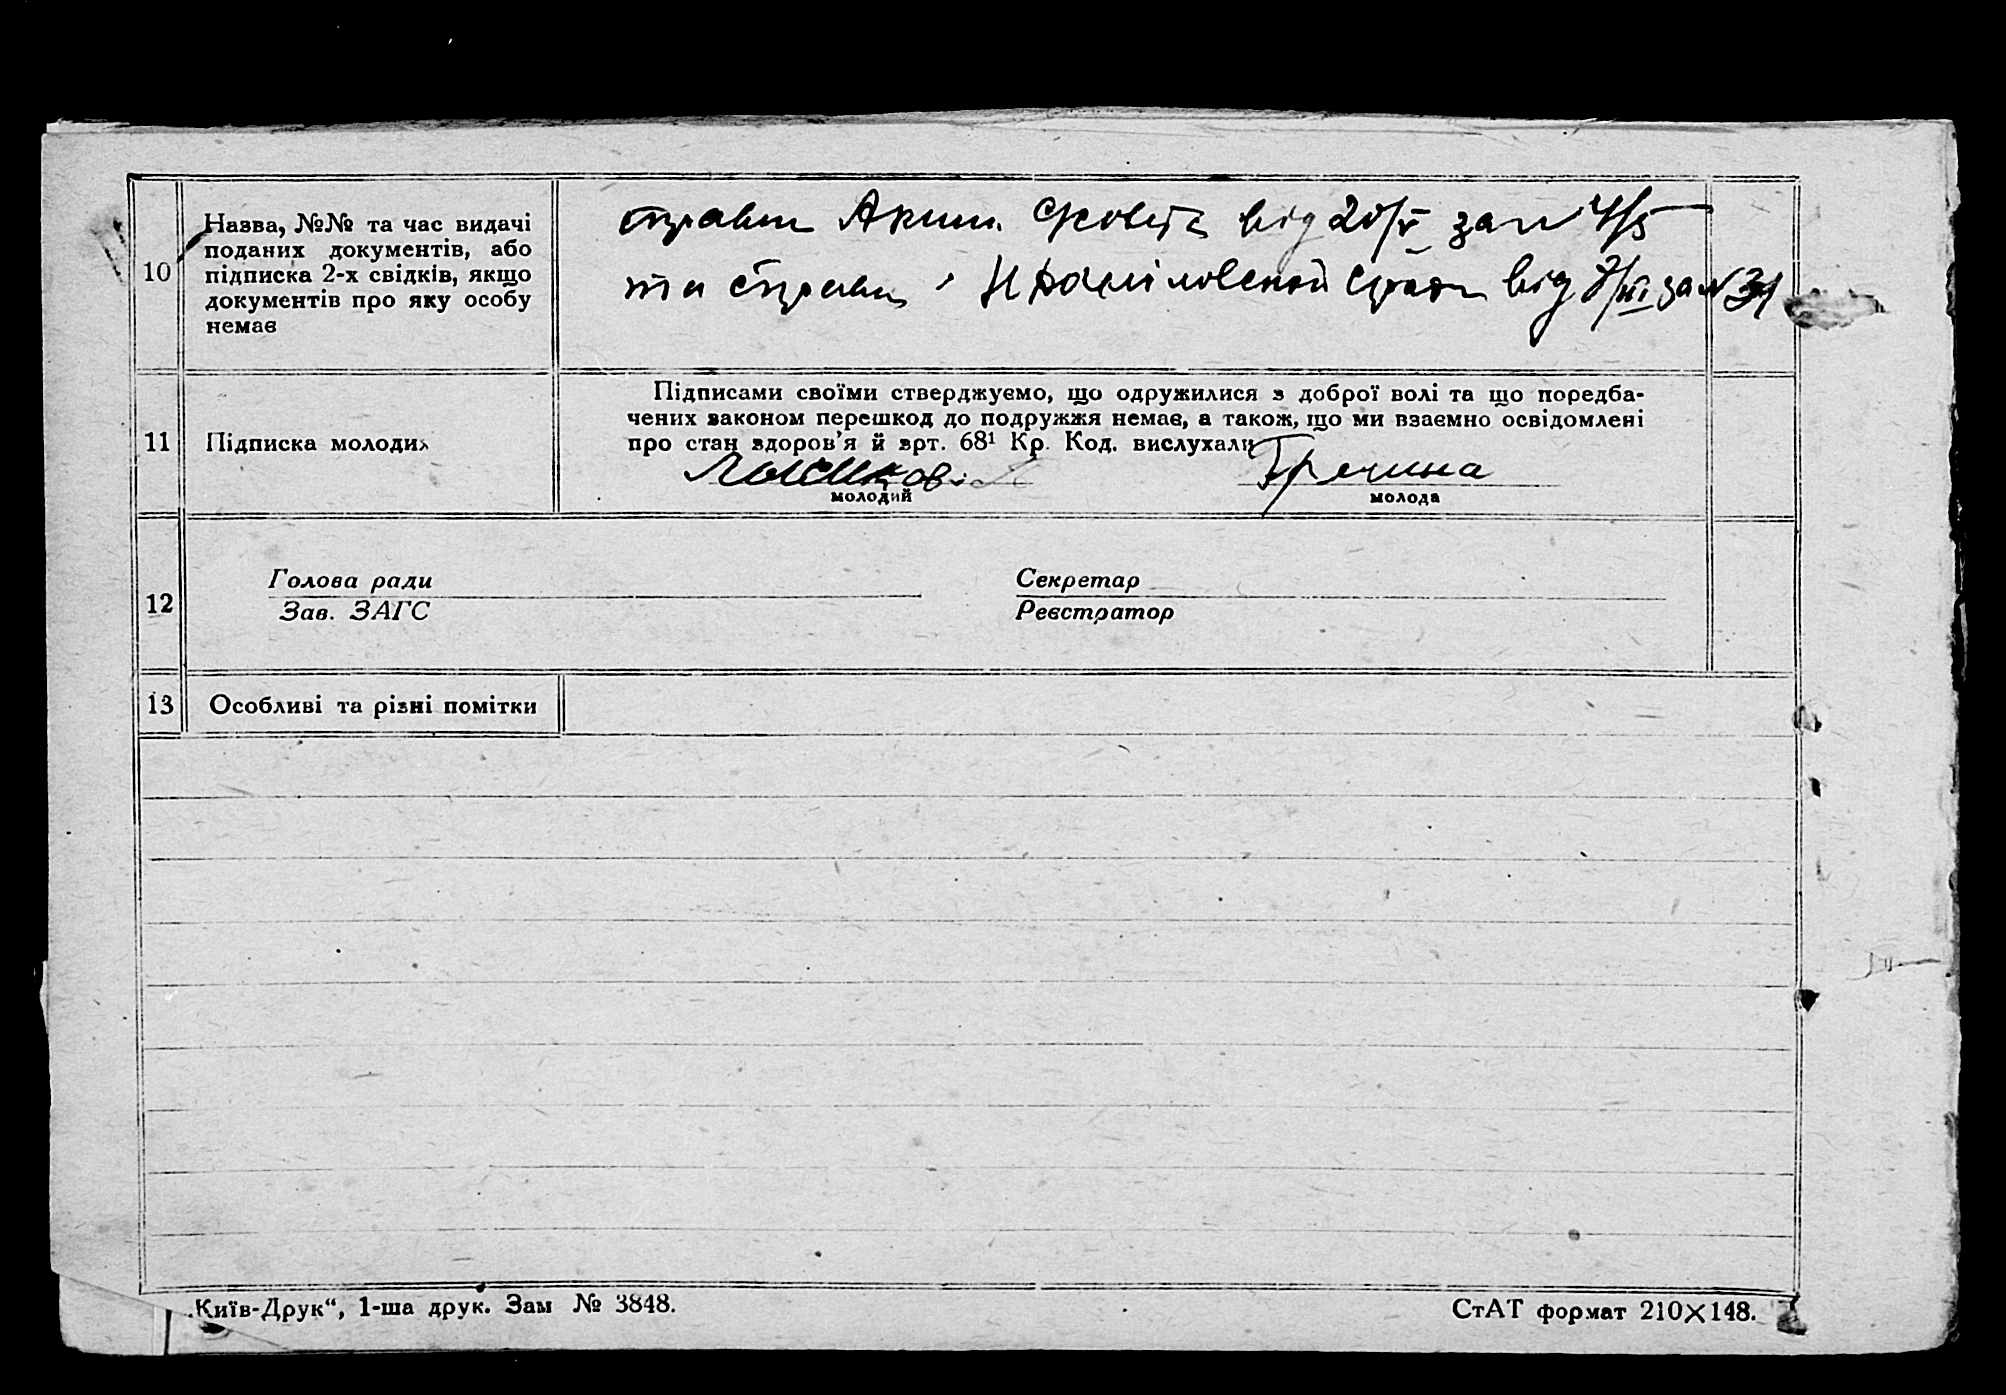 10
Назва, №№ та час видачі
поданих документів, або
підписка 2-х свідків, якщо
документів про яку особу
немає
від 20/V за №
та від за № 31
11
Підписка молодих
Підписами своїми стверджуємо, що одружилися з доброї волі та що поредба-
чених законом перешкод до подружжя немає, а також, що ми взаємно освідомлені
про стан здоров'я й арт. 68¹ Кр. Код. вислухали
Гречина
молодий молода
12
Голова ради Секретар
Зав. ЗАГС Реєстратор
13
Особливі та різні помітки
„Київ-Друк“, 1-ша друк. Зам № 3848. СтАТ формат 210×148.